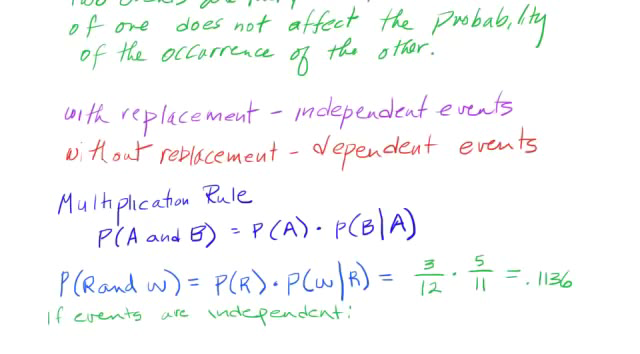 of one does not affect the probability
of the occurrence of the other.
with replacement - independent events
without replacement - dependent events
Multiplication Rule
P(A and B) = P(A) · P(B|A)
P(R and W) = P(R) · P(W|R) = 3/12 · 5/11 = .1136
if events are independent: